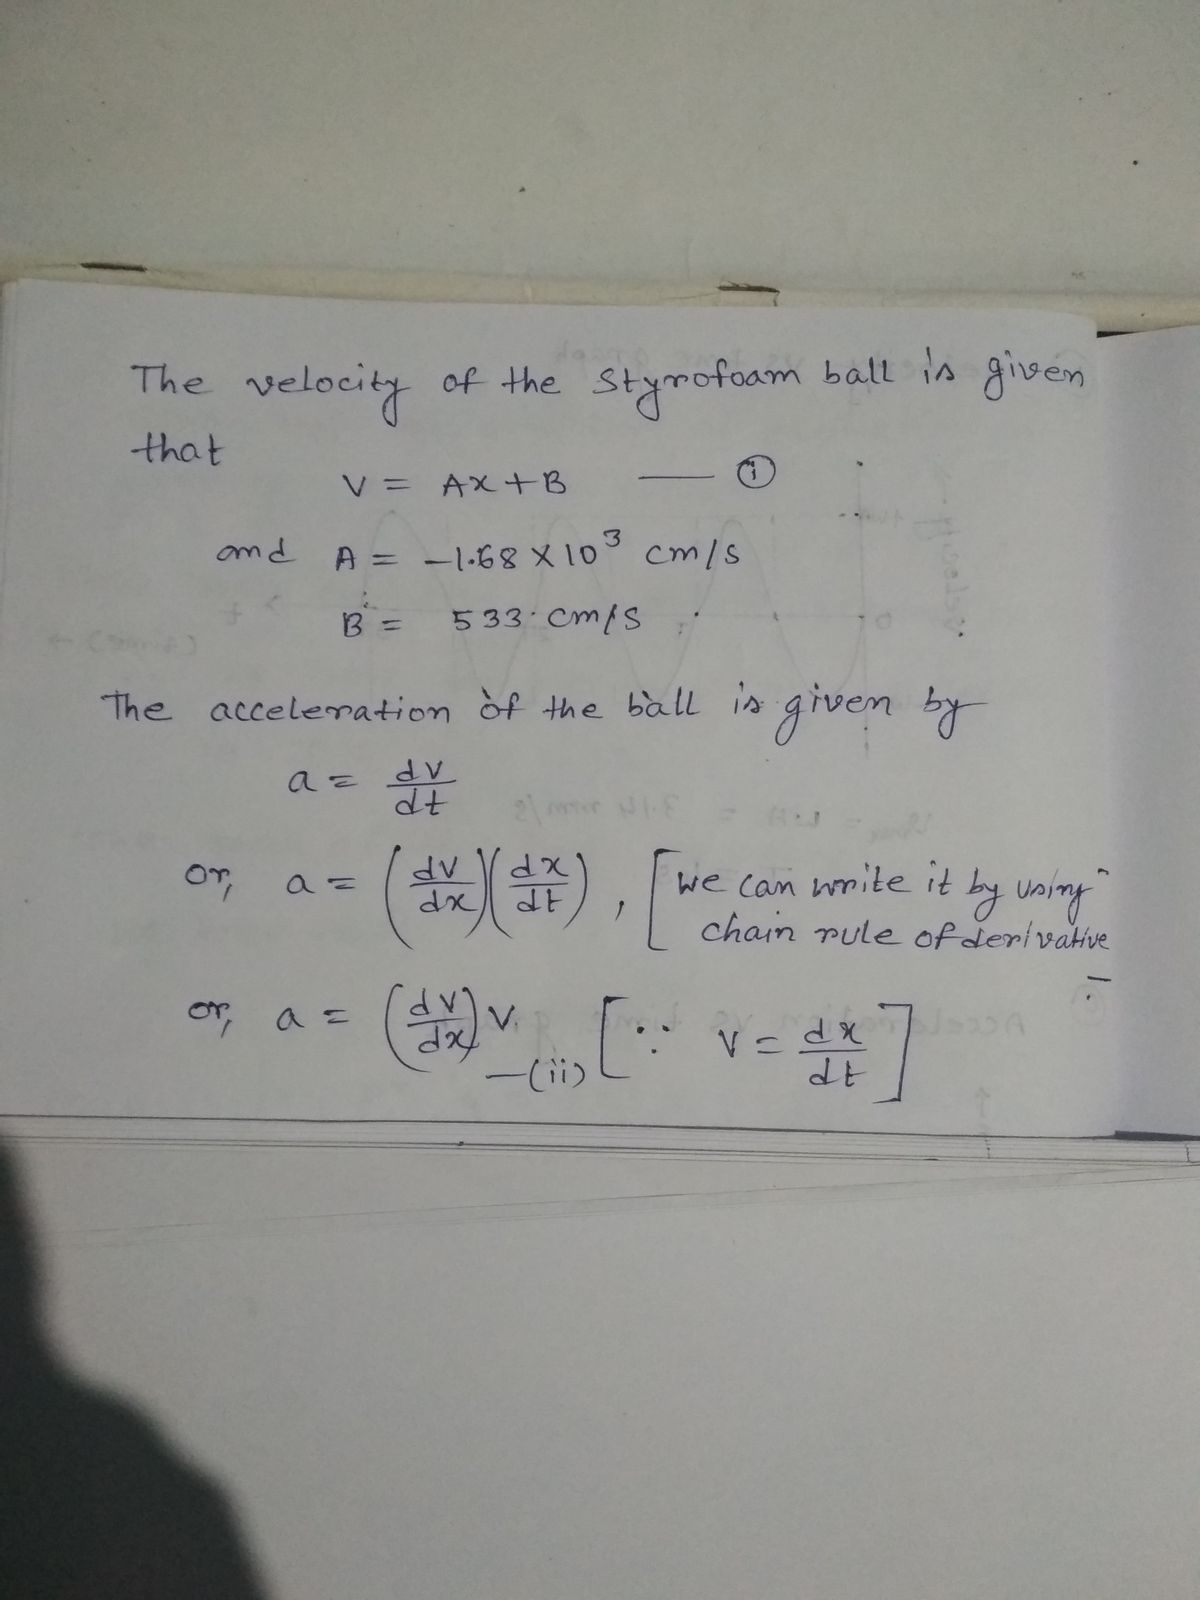 The velocity of the Styrofoam ball is given
that
V = Ax + B — (i)
and A = -1.68 × 10³ cm/s
B = 533 cm/s
The acceleration of the ball is given by
a = dv/dt
or, a = (dv/dx)(dx/dt), [we can write it by using
chain rule of derivative
or, a = (dv/dx) v. —(ii) [∵ v = dx/dt]